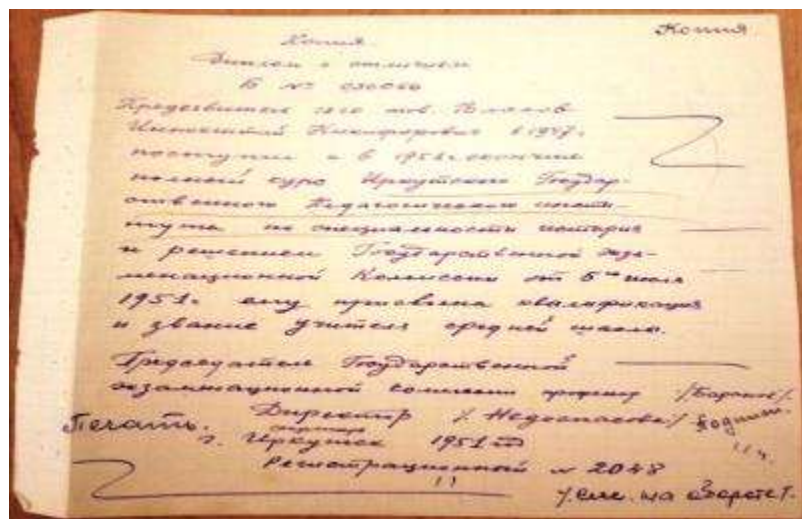 Копия
Копия.
Диплом с отличием
Б №
Предъявитель сего тов. Власов
Иннокентий Никифорович в 1947 г.
поступил и в 1951 г. окончил
полный курс Иркутского Государ-
ственного Педагогического инсти-
тута по специальности история
и решением Государственной экза-
менационной Комиссии от 5 июля
1951 г. ему присвоена квалификация
и звание учителя средней школы.
Председатель Государственной
экзаменационной комиссии
Директор
Печать.
г. Иркутск 1951 год
Регистрационный № 2048
/. см. на обороте /.